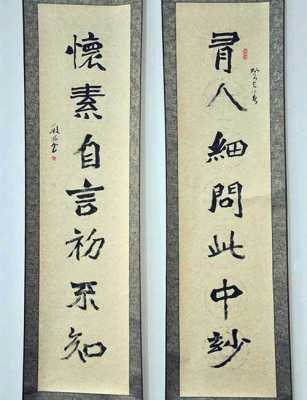 有人細問此中妙
懷素自言初不知